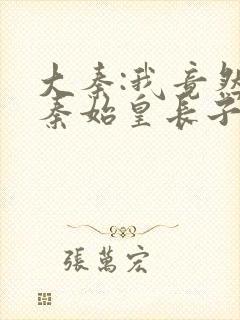 大秦:我竟然
秦始皇长子
張萬宏